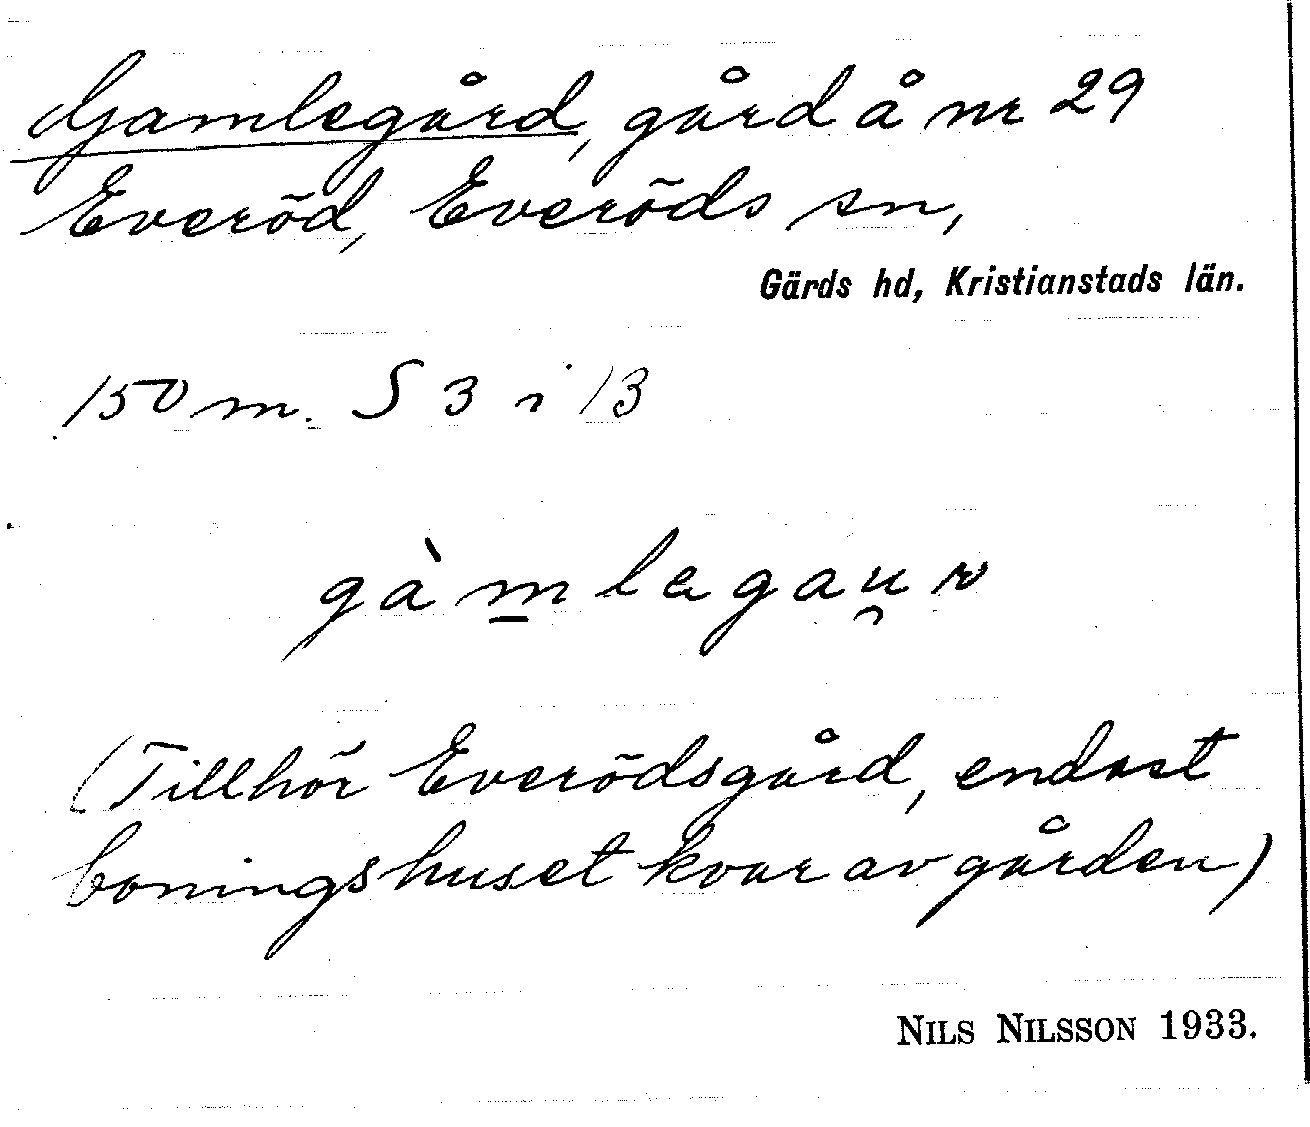 Gamlegård, gård å nr 29
Everöd, Everöds sn,
Gärds hd, Kristianstads län.
150 m. S 3 i 13
gàm̲legau̯r
(Tillhör Everödsgård, endast
boningshuset kvar av gården)
NILS NILSSON 1933.